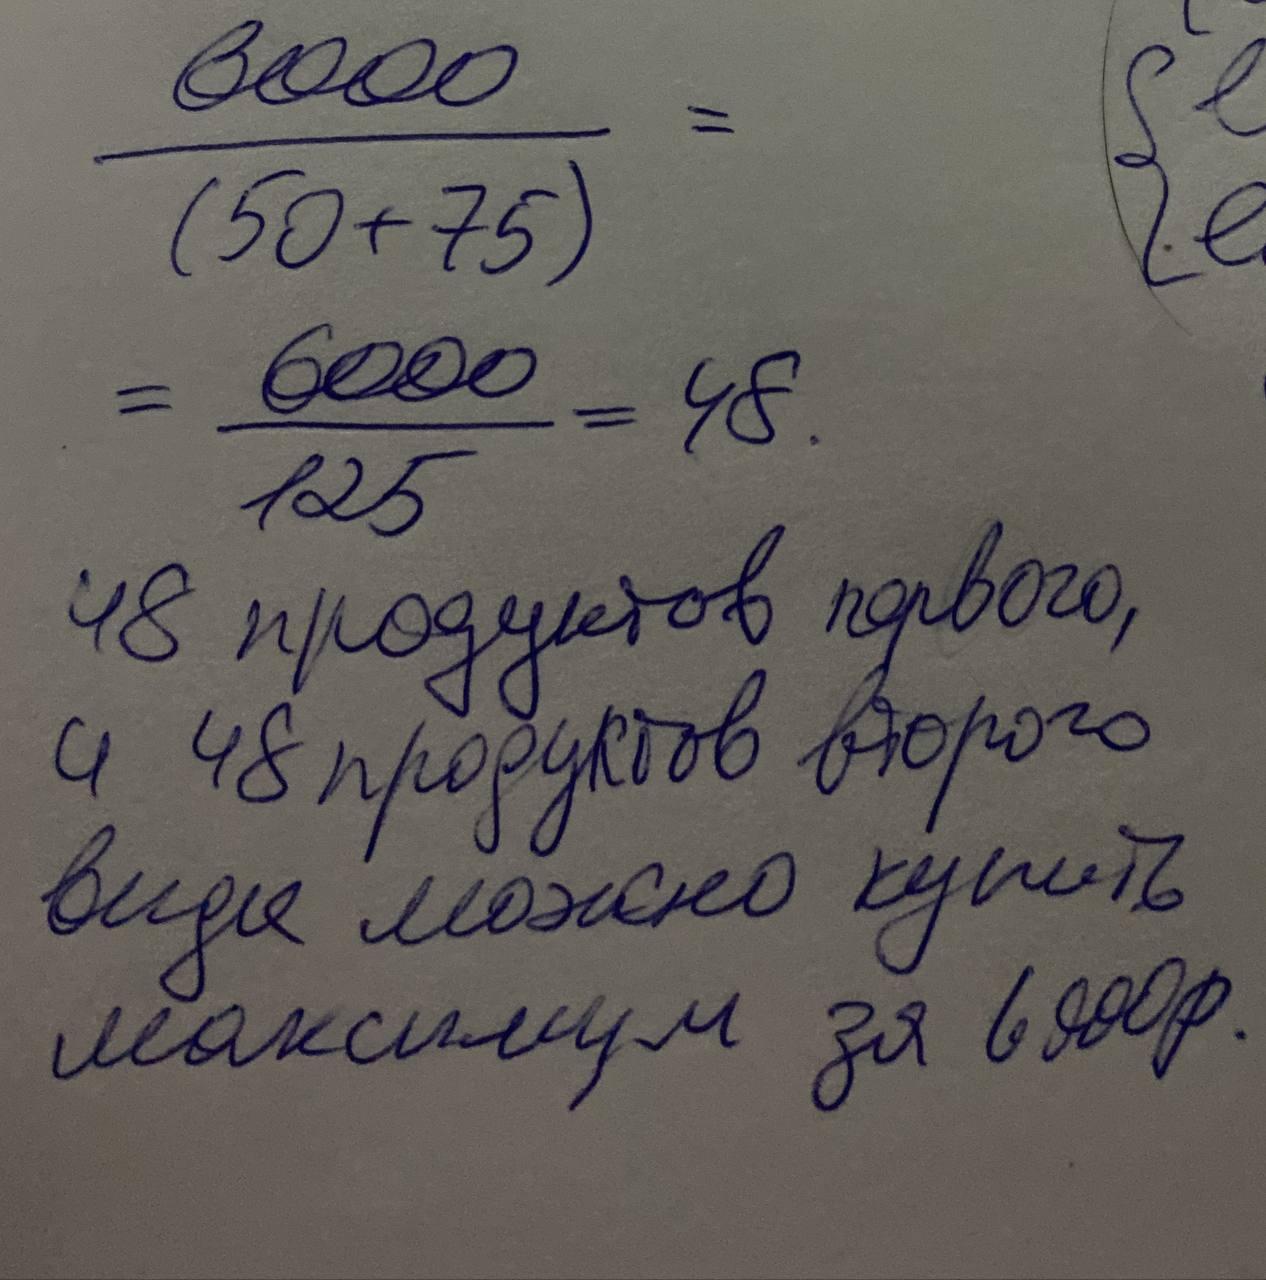 6000
=
(50+75)
= 6000 = 48.
125
48 продуктов первого,
и 48 продуктов второго
вида можно купить
максимум за 6000р.